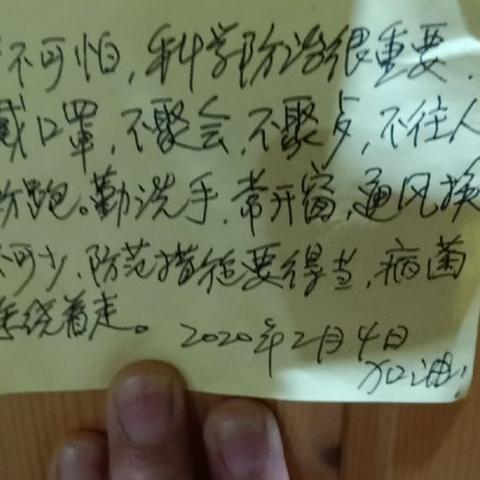 不可怕,科学防治很重要.
戴口罩,不聚会,不聚点,不往人
跑。勤洗手.常开窗,通风换
不可少,防范措施要得当,病菌
绕着走。2020年2月4日
加油!